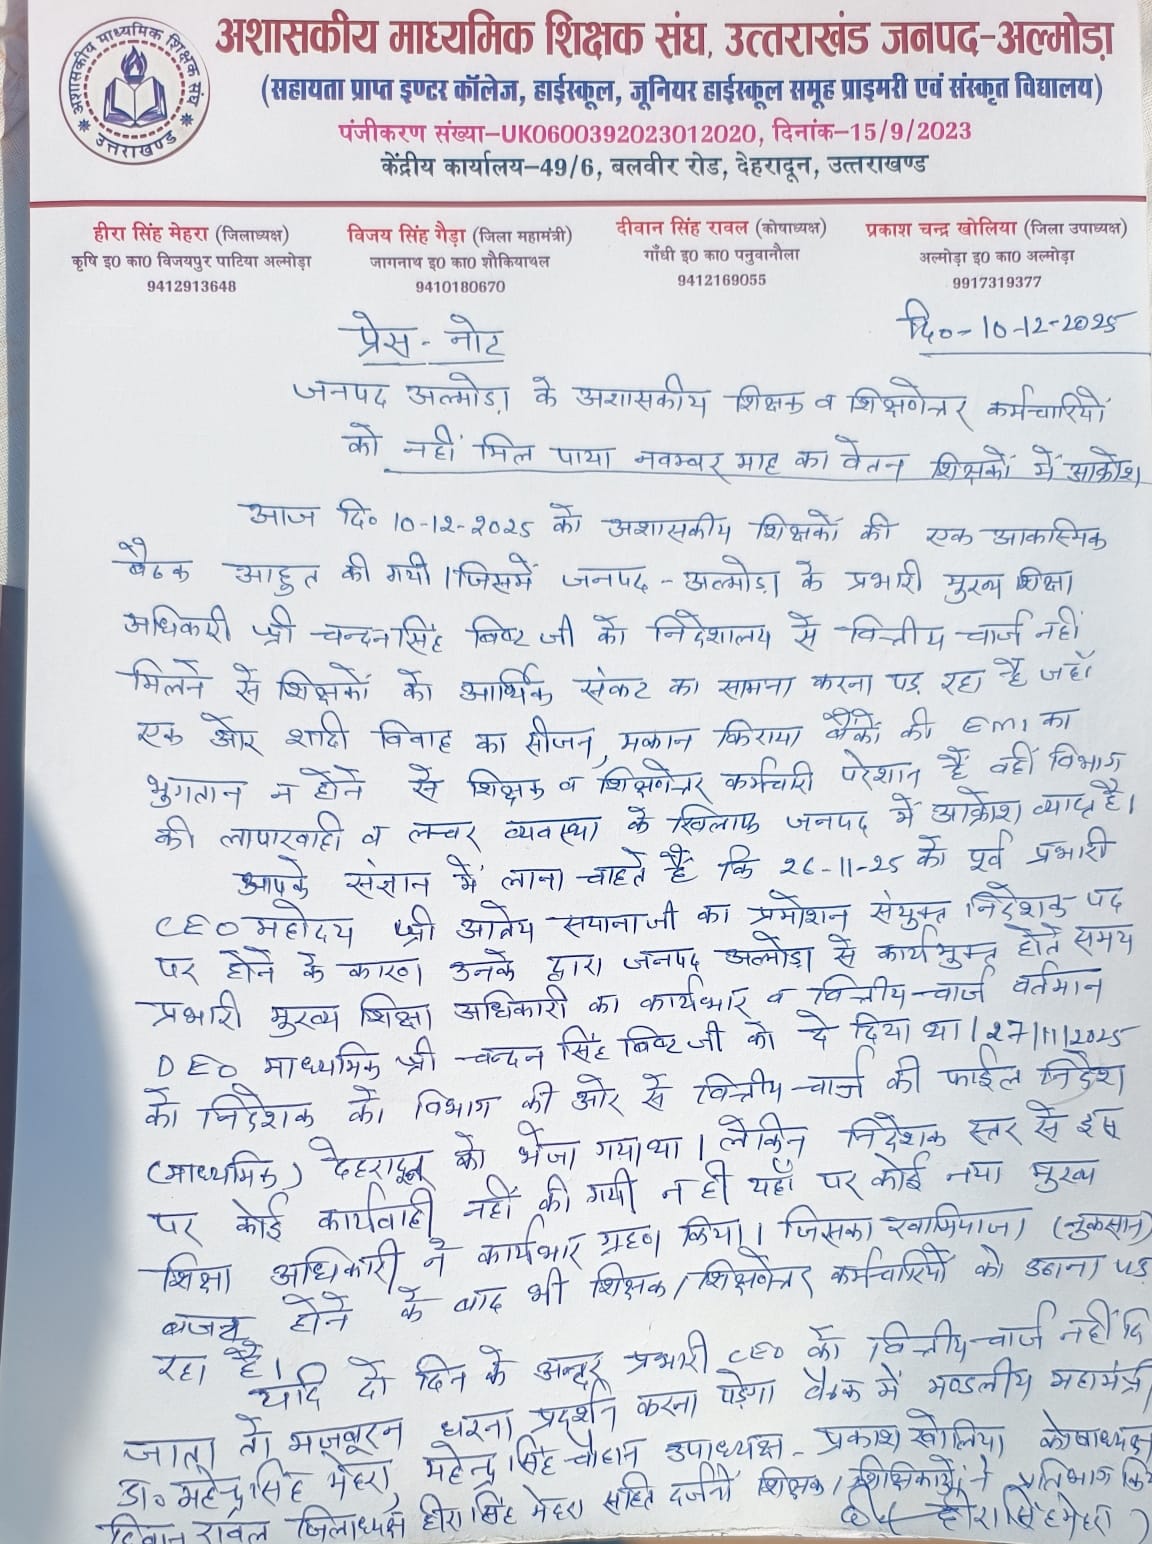 अशासकीय माध्यमिक शिक्षक संघ, उत्तराखंड जनपद-अल्मोड़ा
(सहायता प्राप्त इण्टर कॉलेज, हाईस्कूल, जूनियर हाईस्कूल समूह प्राइमरी एवं संस्कृत विद्यालय)
पंजीकरण संख्या-UK0600392023012020, दिनांक-15/9/2023
केंद्रीय कार्यालय-49/6, बलवीर रोड, देहरादून, उत्तराखण्ड
अशासकीय माध्यमिक शिक्षक संघ
उत्तराखण्ड
हीरा सिंह मेहरा (जिलाध्यक्ष)
कृषि इ0 का0 विजयपुर पाटिया अल्मोड़ा
9412913648
विजय सिंह गैड़ा (जिला महामंत्री)
जागनाथ इ0 का0 शौकियाथल
9410180670
दीवान सिंह रावल (कोषाध्यक्ष)
गाँधी इ0 का0 पनुवानौला
9412169055
प्रकाश चन्द्र खोलिया (जिला उपाध्यक्ष)
अल्मोड़ा इ0 का0 अल्मोड़ा
9917319377
दि०- 10-12-2025
प्रेस-नोट
जनपद अल्मोड़ा के अशासकीय शिक्षक व शिक्षणेत्तर कर्मचारियों
को नहीं मिल पाया नवम्बर माह का वेतन शिक्षकों में आक्रोश
आज दि० 10-12-2025 को अशासकीय शिक्षकों की एक आकस्मिक
बैठक आहुत की गयी। जिसमें जनपद-अल्मोड़ा के प्रभारी मुख्य शिक्षा
अधिकारी श्री चन्दनसिंह बिष्ट जी को निदेशालय से वित्तीय चार्ज नहीं
मिलने से शिक्षकों को आर्थिक संकट का सामना करना पड़ रहा है जहाँ
एक ओर शादी विवाह का सीजन, मकान किराया बैंकों की EMI का
भुगतान न होने से शिक्षक व शिक्षणेत्तर कर्मचारी परेशान हैं वहीं विभाग
की लापरवाही व लचर व्यवस्था के खिलाफ जनपद में आक्रोश व्याप्त है।
आपके संज्ञान में लाना चाहते हैं कि 26-11-25 को पूर्व प्रभारी
CEO महोदय श्री अत्रेय सयानाजी का प्रमोशन संयुक्त निदेशक पद
पर होने के कारण उनके द्वारा जनपद अल्मोड़ा से कार्यमुक्त होते समय
प्रभारी मुख्य शिक्षा अधिकारी का कार्यभार व वित्तीय चार्ज वर्तमान
DEO माध्यमिक श्री चन्दन सिंह बिष्ट जी को दे दिया था। 27/11/2025
को निदेशक को विभाग की ओर से वित्तीय चार्ज की फाईल निदेश
(माध्यमिक) देहरादून को भेजा गया था। लेकिन निदेशक स्तर से इस
पर कोई कार्यवाही नहीं की गयी न ही यहाँ पर कोई नया मुख्य
शिक्षा अधिकारी ने कार्यभार ग्रहण किया। जिसका खामियाजा (नुकसान)
बजट होने के बाद भी शिक्षक/शिक्षणेत्तर कर्मचारियों को उठाना पड़
रहा है।
यदि दो दिन के अन्दर प्रभारी CEO को वित्तीय चार्ज नहीं दि
जाता तो मजबूरन धरना प्रदर्शन करना पड़ेगा बैठक में मण्डलीय महामंत्री
डा० महेन्द्र सिंह मेहरा, महेन्द्र सिंह चौहान उपाध्यक्ष- प्रकाश खोलिया कोषाध्यक्ष
दिवान रावल जिलाध्यक्ष हीरा सिंह मेहरा सहित दर्जनों शिक्षक/शिक्षिकायें ने प्रतिभाग कि
(हीरा सिंह मेहरा)